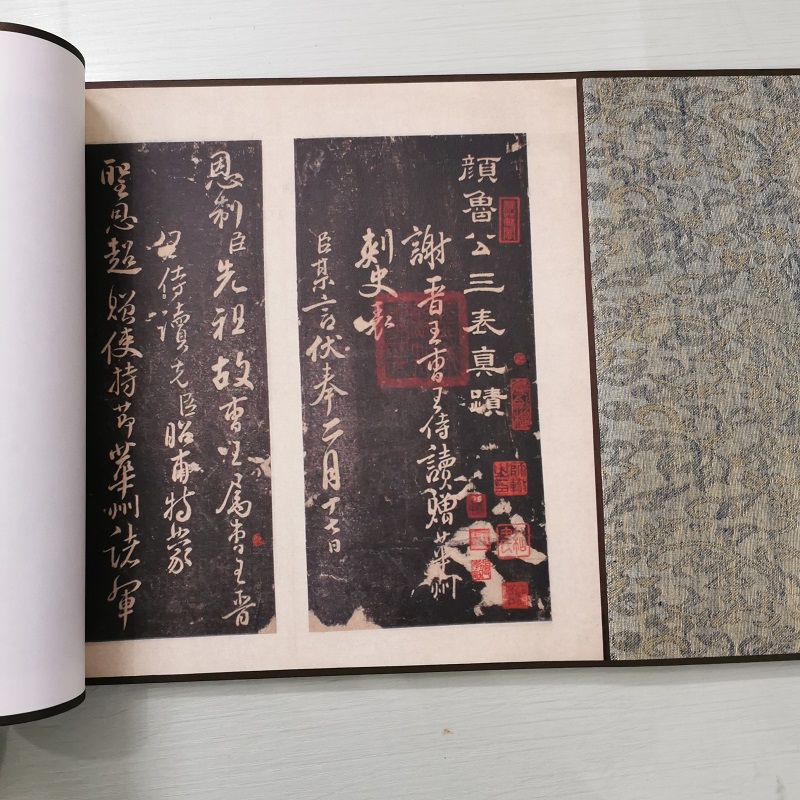 顔魯公三表真蹟
謝晋王曹王侍讀贈華州
刺史表
臣某言伏奉二月十七日
恩制臣先祖故曹王属曹王晋
王侍讀先臣昭甫特蒙
聖恩超贈使持節華州諸軍